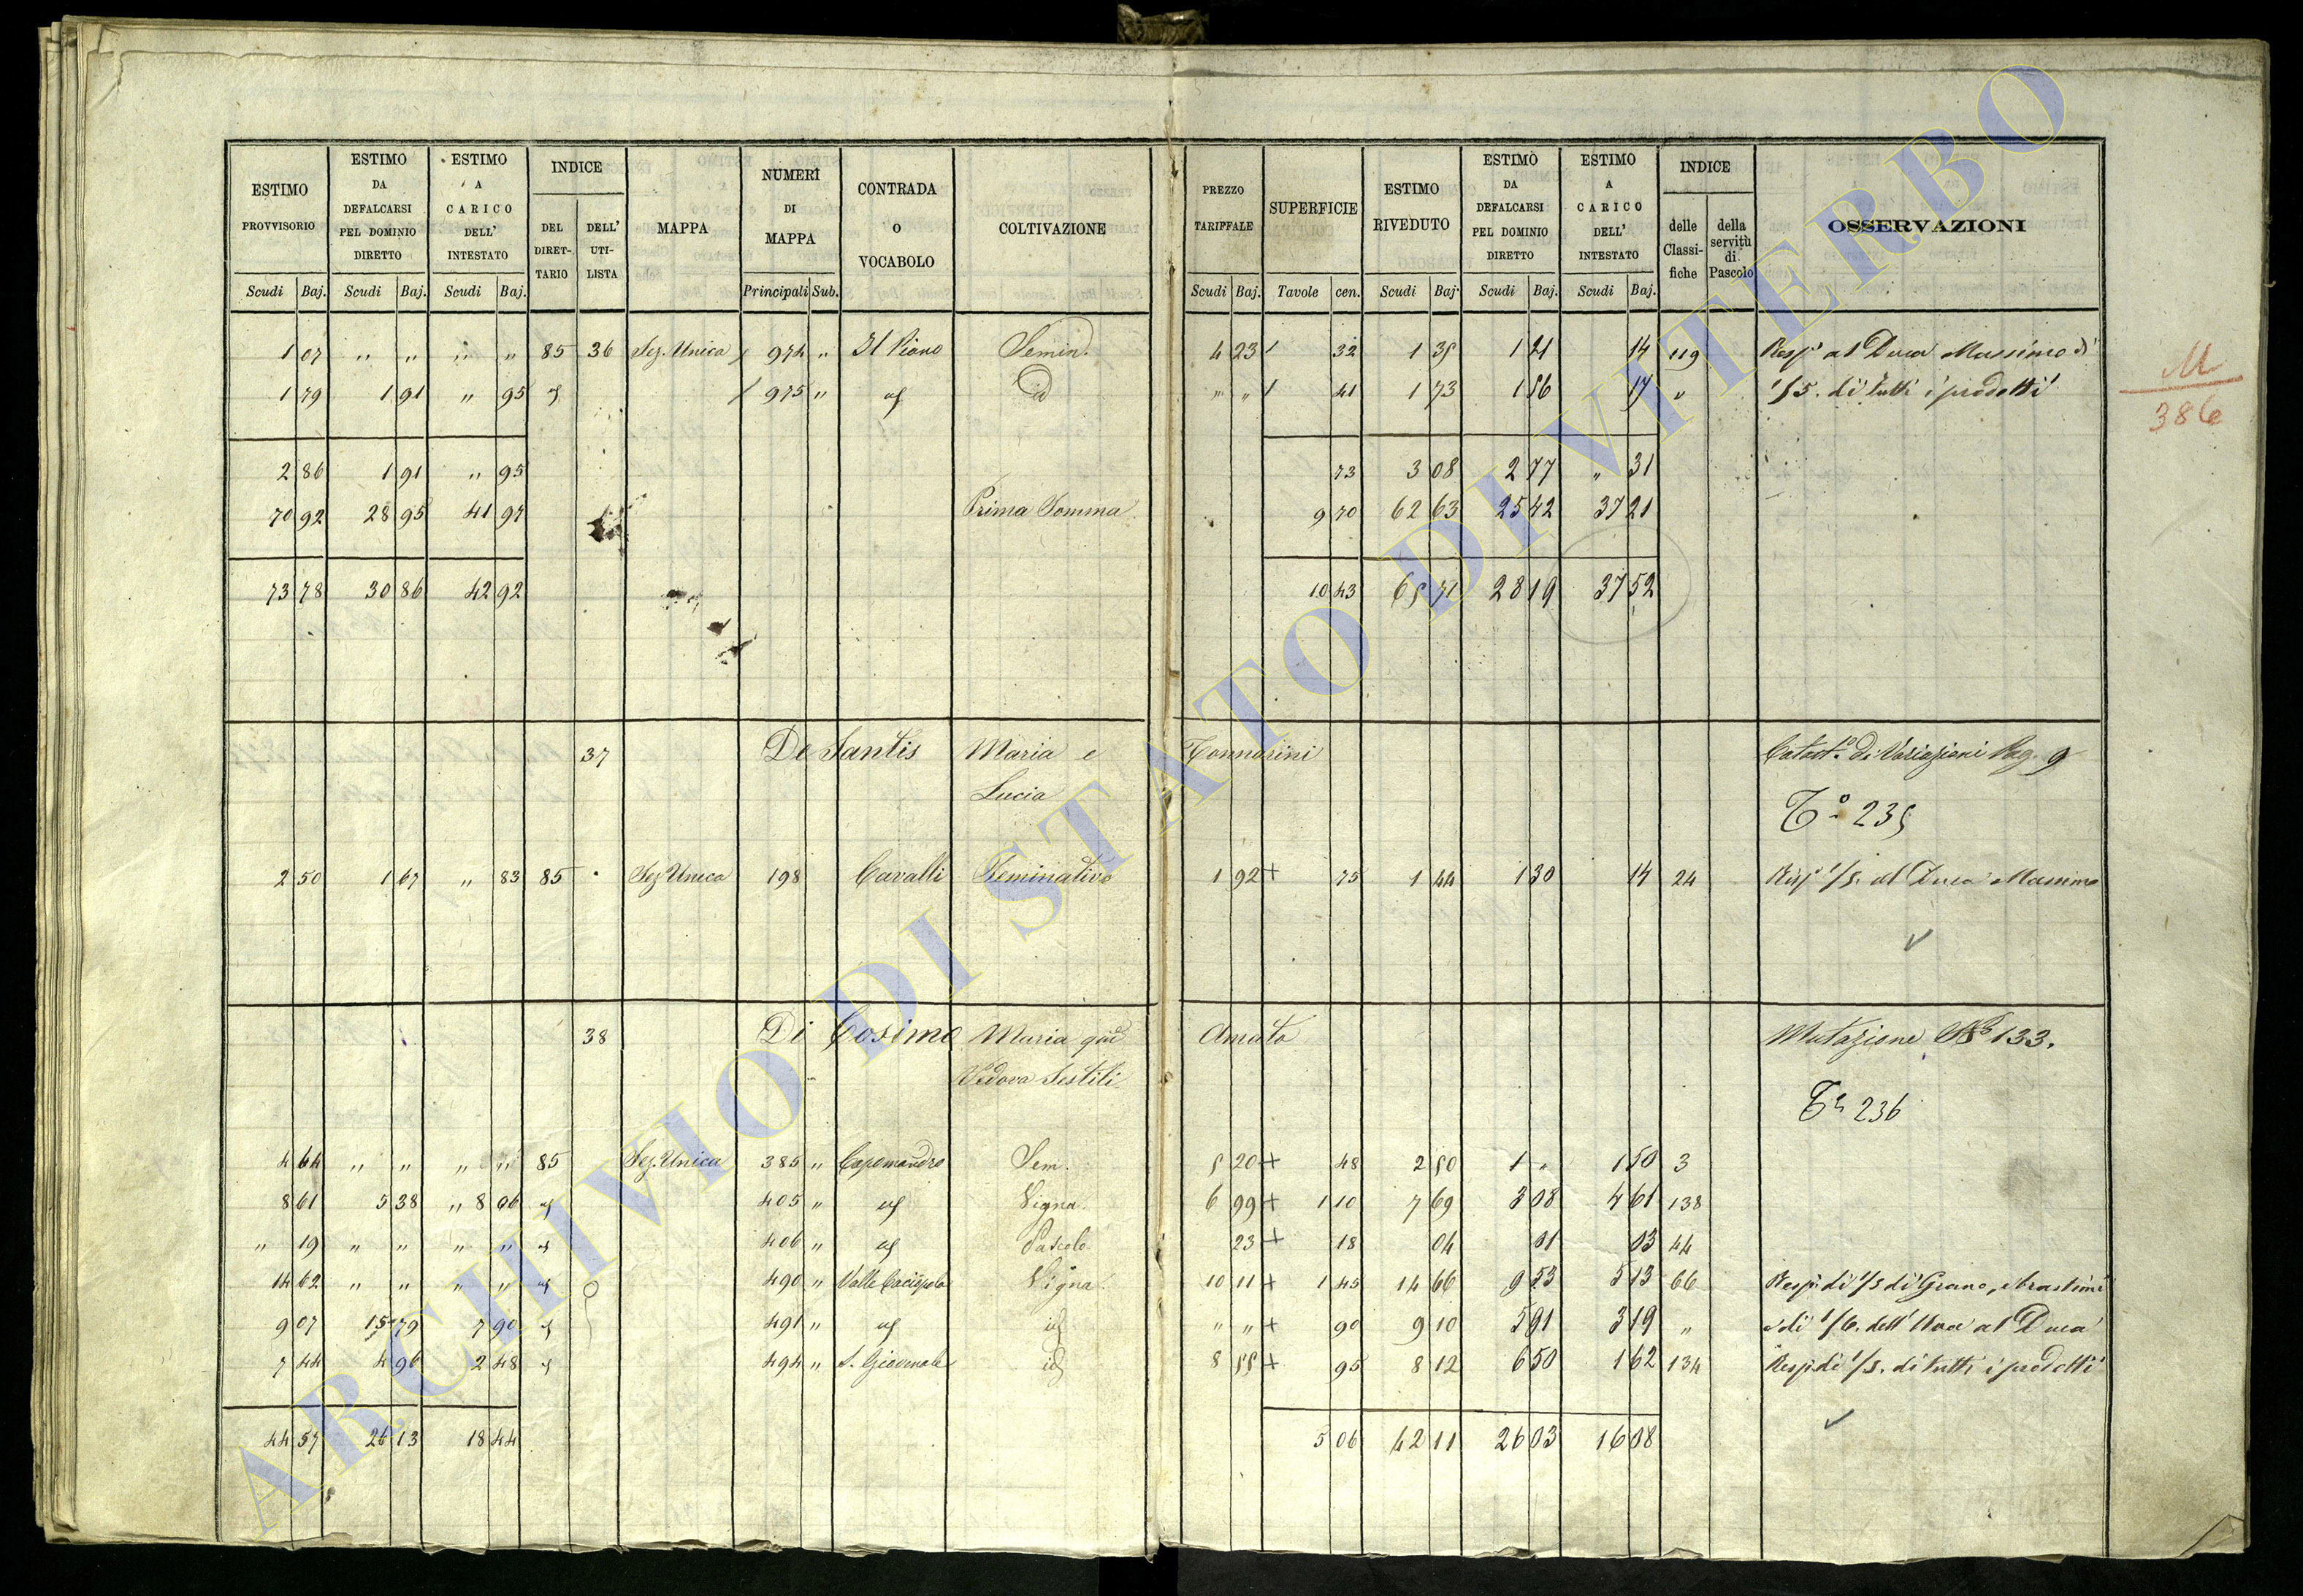 ESTIMO PROVVISORIO Scudi Baj. ESTIMO DA DEFALCARSI PEL DOMINIO DIRETTO Scudi Baj. ESTIMO A CARICO DELL' INTESTATO Scudi Baj. INDICE DEL DIRET-TARIO DELL' UTI-LISTA MAPPA NUMERI DI MAPPA Principali Sub. CONTRADA O VOCABOLO COLTIVAZIONE PREZZO TARIFFALE Scudi Baj. SUPERFICIE Tavole cen. ESTIMO RIVEDUTO Scudi Baj. ESTIMO DA DEFALCARSI PEL DOMINIO DIRETTO Scudi Baj. ESTIMO A CARICO DELL' INTESTATO Scudi Baj. INDICE delle Classi-fiche della servitù di Pascolo OSSERVAZIONI
1 07 " " " " 85 36 Sez. Unica 974 " Il Piano Semin. 4 23 32 1 35 1 21 14 119 Rispe al Duca Massimo di
1 79 1 91 " 95 id 975 " id id " " 41 1 73 1 56 17 " 1/5. di tutti i prodotti
2 86 1 91 " 95 73 3 08 2 77 " 31
70 92 28 95 41 97 Prima Somma 9 70 62 63 25 42 37 21
73 78 30 86 42 92 10 43 65 71 28 19 37 52
M
386
37 De Santis Maria e Tonnarini Catasto di Variazioni Pag. 9
Lucia
To 235
2 50 1 67 " 83 85 Sez Unica 198 Cavalli Seminativo 1 92 + 75 1 44 1 30 14 24 Risp 1/5. al Duca Massimo
38 Di Cosimo Maria qm Amato Mutazione No 133.
Vedova Sestili
To 236
4 64 " " " " 85 Sez. Unica 385 " Capomandro Sem. 5 20 + 48 2 50 1 " 1 50 3
8 61 5 38 " 8 06 id 405 " id Vigna 6 99 + 1 10 7 69 3 08 4 61 138
" 19 " " " " id 406 " id Pascolo 23 + 18 04 01 03 44
14 62 " " " " id 490 " Valle Vigna 10 11 + 1 45 14 66 9 53 5 13 66 Rispe di 1/5 di Grano,
9 07 15 79 7 90 id 491 " id id " " + 90 9 10 5 91 3 19 " e di 1/6. dell' Uva al Duca
7 44 4 96 2 48 id 494 " S. Giovenale id 8 55 + 95 8 12 6 50 1 62 134 Rispe di 1/5. di tutti i prodotti
44 57 26 13 18 44 5 06 42 11 26 03 16 08
ARCHIVIO DI STATO DI VITERBO